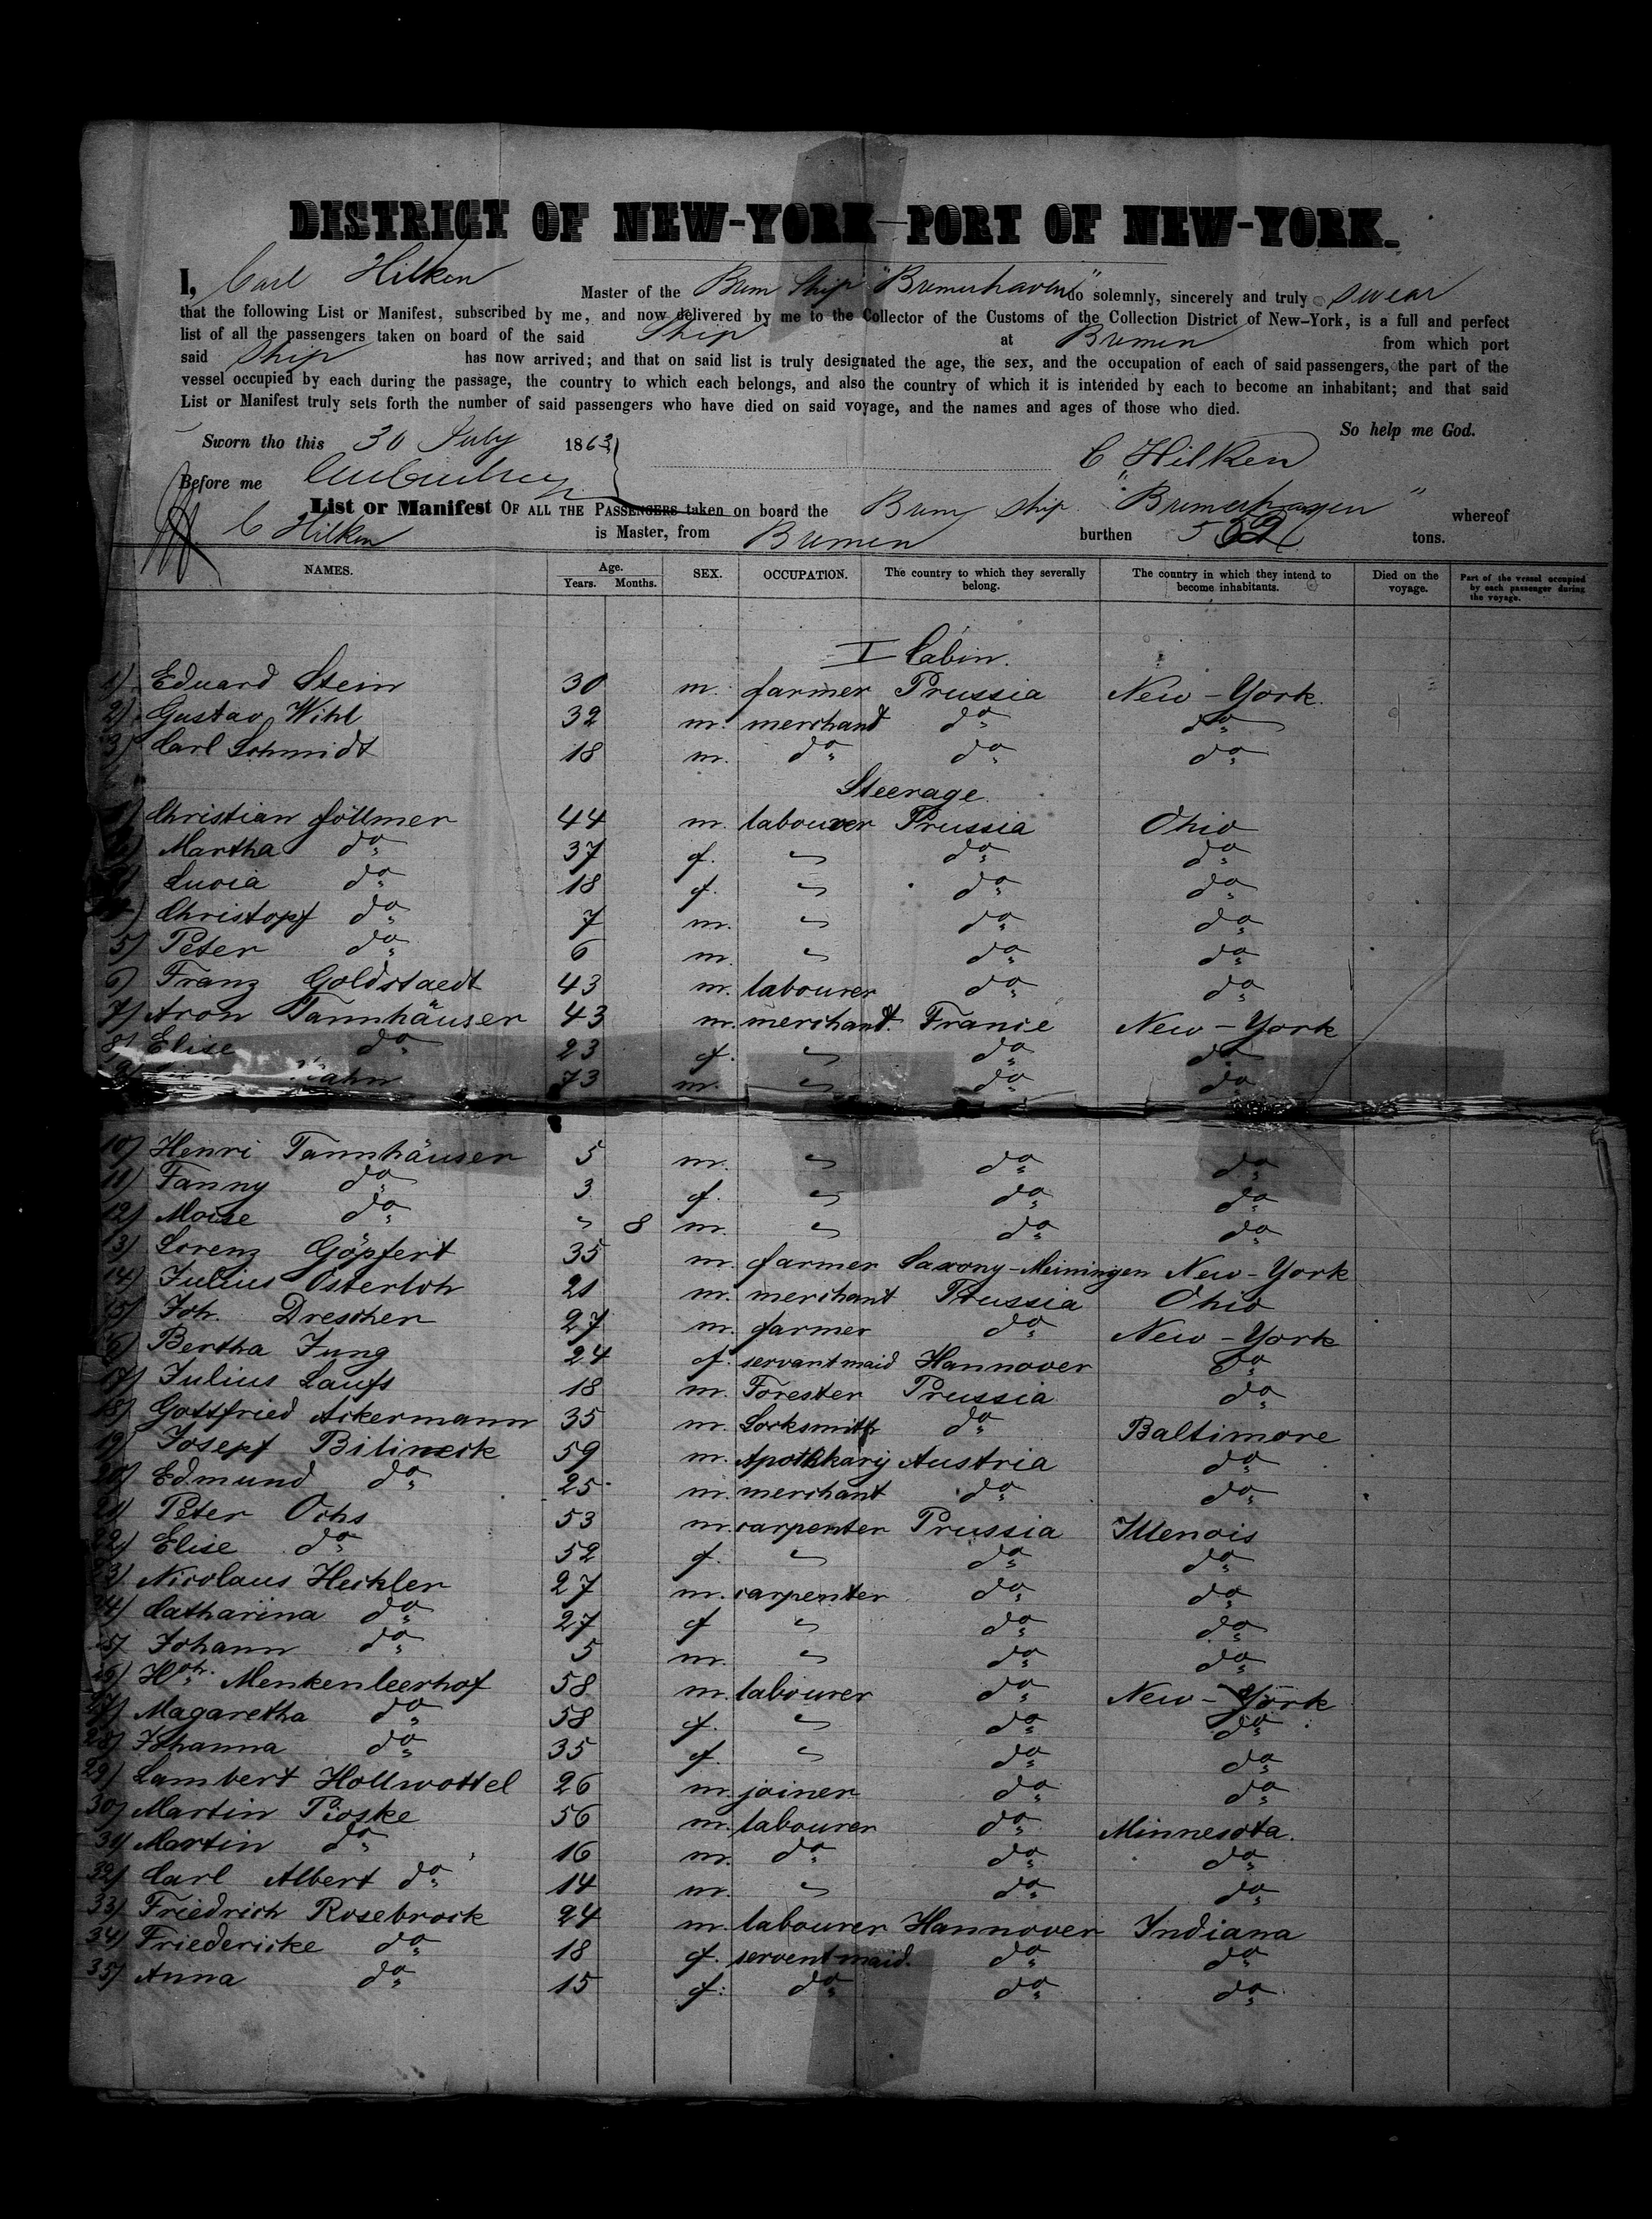 DISTRICT OF NEW-YORK—PORT OF NEW-YORK.
I, Carl Hilken Master of the Brem Ship "Bremerhaven" do solemnly, sincerely and truly swear
that the following List or Manifest, subscribed by me, and now delivered by me to the Collector of the Customs of the Collection District of New-York, is a full and perfect
list of all the passengers taken on board of the said Ship at Bremen from which port
said Ship has now arrived; and that on said list is truly designated the age, the sex, and the occupation of each of said passengers, the part of the
vessel occupied by each during the passage, the country to which each belongs, and also the country of which it is intended by each to become an inhabitant; and that said
List or Manifest truly sets forth the number of said passengers who have died on said voyage, and the names and ages of those who died.
So help me God.
Sworn tho this 30 July 1863
C Hilken
Before me
List or Manifest OF ALL THE PASSENGERS taken on board the Brem ship "Bremerhaven" whereof
C Hilken is Master, from Bremen burthen tons.
NAMES. Age. Years. Months. SEX. OCCUPATION. The country to which they severally belong. The country in which they intend to become inhabitants. Died on the voyage. Part of the vessel occupied by each passenger during the voyage.
I Cabin.
1) Eduard Stein 30 m. farmer Prussia New-York.
2) Gustav Wihl 32 m. merchant do do
3) Carl Schmidt 18 m. do do do
Steerage
1) Christian Föllmer 44 m. labourer Prussia Ohio
Martha do 37 f. " do do
Lucia do 18 f. " do do
Christopf do 7 m. " do do
5) Peter do 6 m. " do do
6) Franz Goldstaedt 43 m. labourer do do
7) Aron Tannhäuser 43 m. merchant. France New-York
8) Elise do 23 f. " do do
9) 73 m. " do do
10) Henri Tannhäuser 5 m. " do do
11) Fanny do 3 f. " do do
12) Moise do " 8 m. " do do
13) Lorenz Göpfert 35 m. farmer Saxony-Meiningen New-York
14) Julius Osterloh 21 m. merchant Prussia Ohio
15) Joh. Drescher 27 m. farmer do New-York
16) Bertha Jung 24 f. servantmaid Hannover do
17) Julius Laufs 18 m. Forester Prussia do
18) Gottfried Ackermann 35 m. Locksmith do Baltimore
19) Josepf Bilimeck 59 m. Apothkary Austria do
20) Edmund do 25 m. merchant do do
21) Peter Ochs 53 m. carpenter Prussia Illenois
22) Elise do 52 f. " do do
23) Nicolaus Heckler 27 m. carpenter do do
24) Catharina do 27 f " do do
25) Johann do 5 m. " do do
26) Hch. Menkenleerhof 58 m. labourer do New-York
27) Magaretha do 58 f. " do do
28) Johanna do 35 f. " do do
29) Lambert Hollwottel 26 m. joiner do do
30) Martin Pioske 56 m. labourer do Minnesota.
31) Martin do 16 m. do do do
32) Carl Albert do 14 m. " do do
33) Friedrich Rosebrock 24 m. labourer Hannover Indiana
34) Friedericke do 18 f. servent-maid. do do
35) Anna do 15 f. do do do